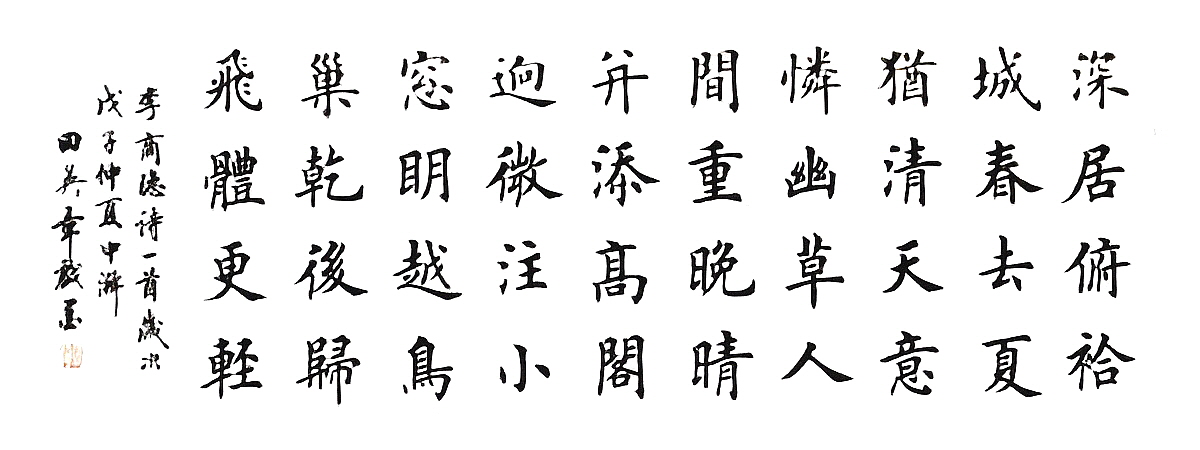 深居俯袷
城春去夏
猶清天意
憐幽草人
間重晚晴
并添髙閣
逈微注小
窓明越鳥
巢乾後歸
飛體更軽
李商隱诗一首歲次
戊子仲夏中澣
田英章戲墨